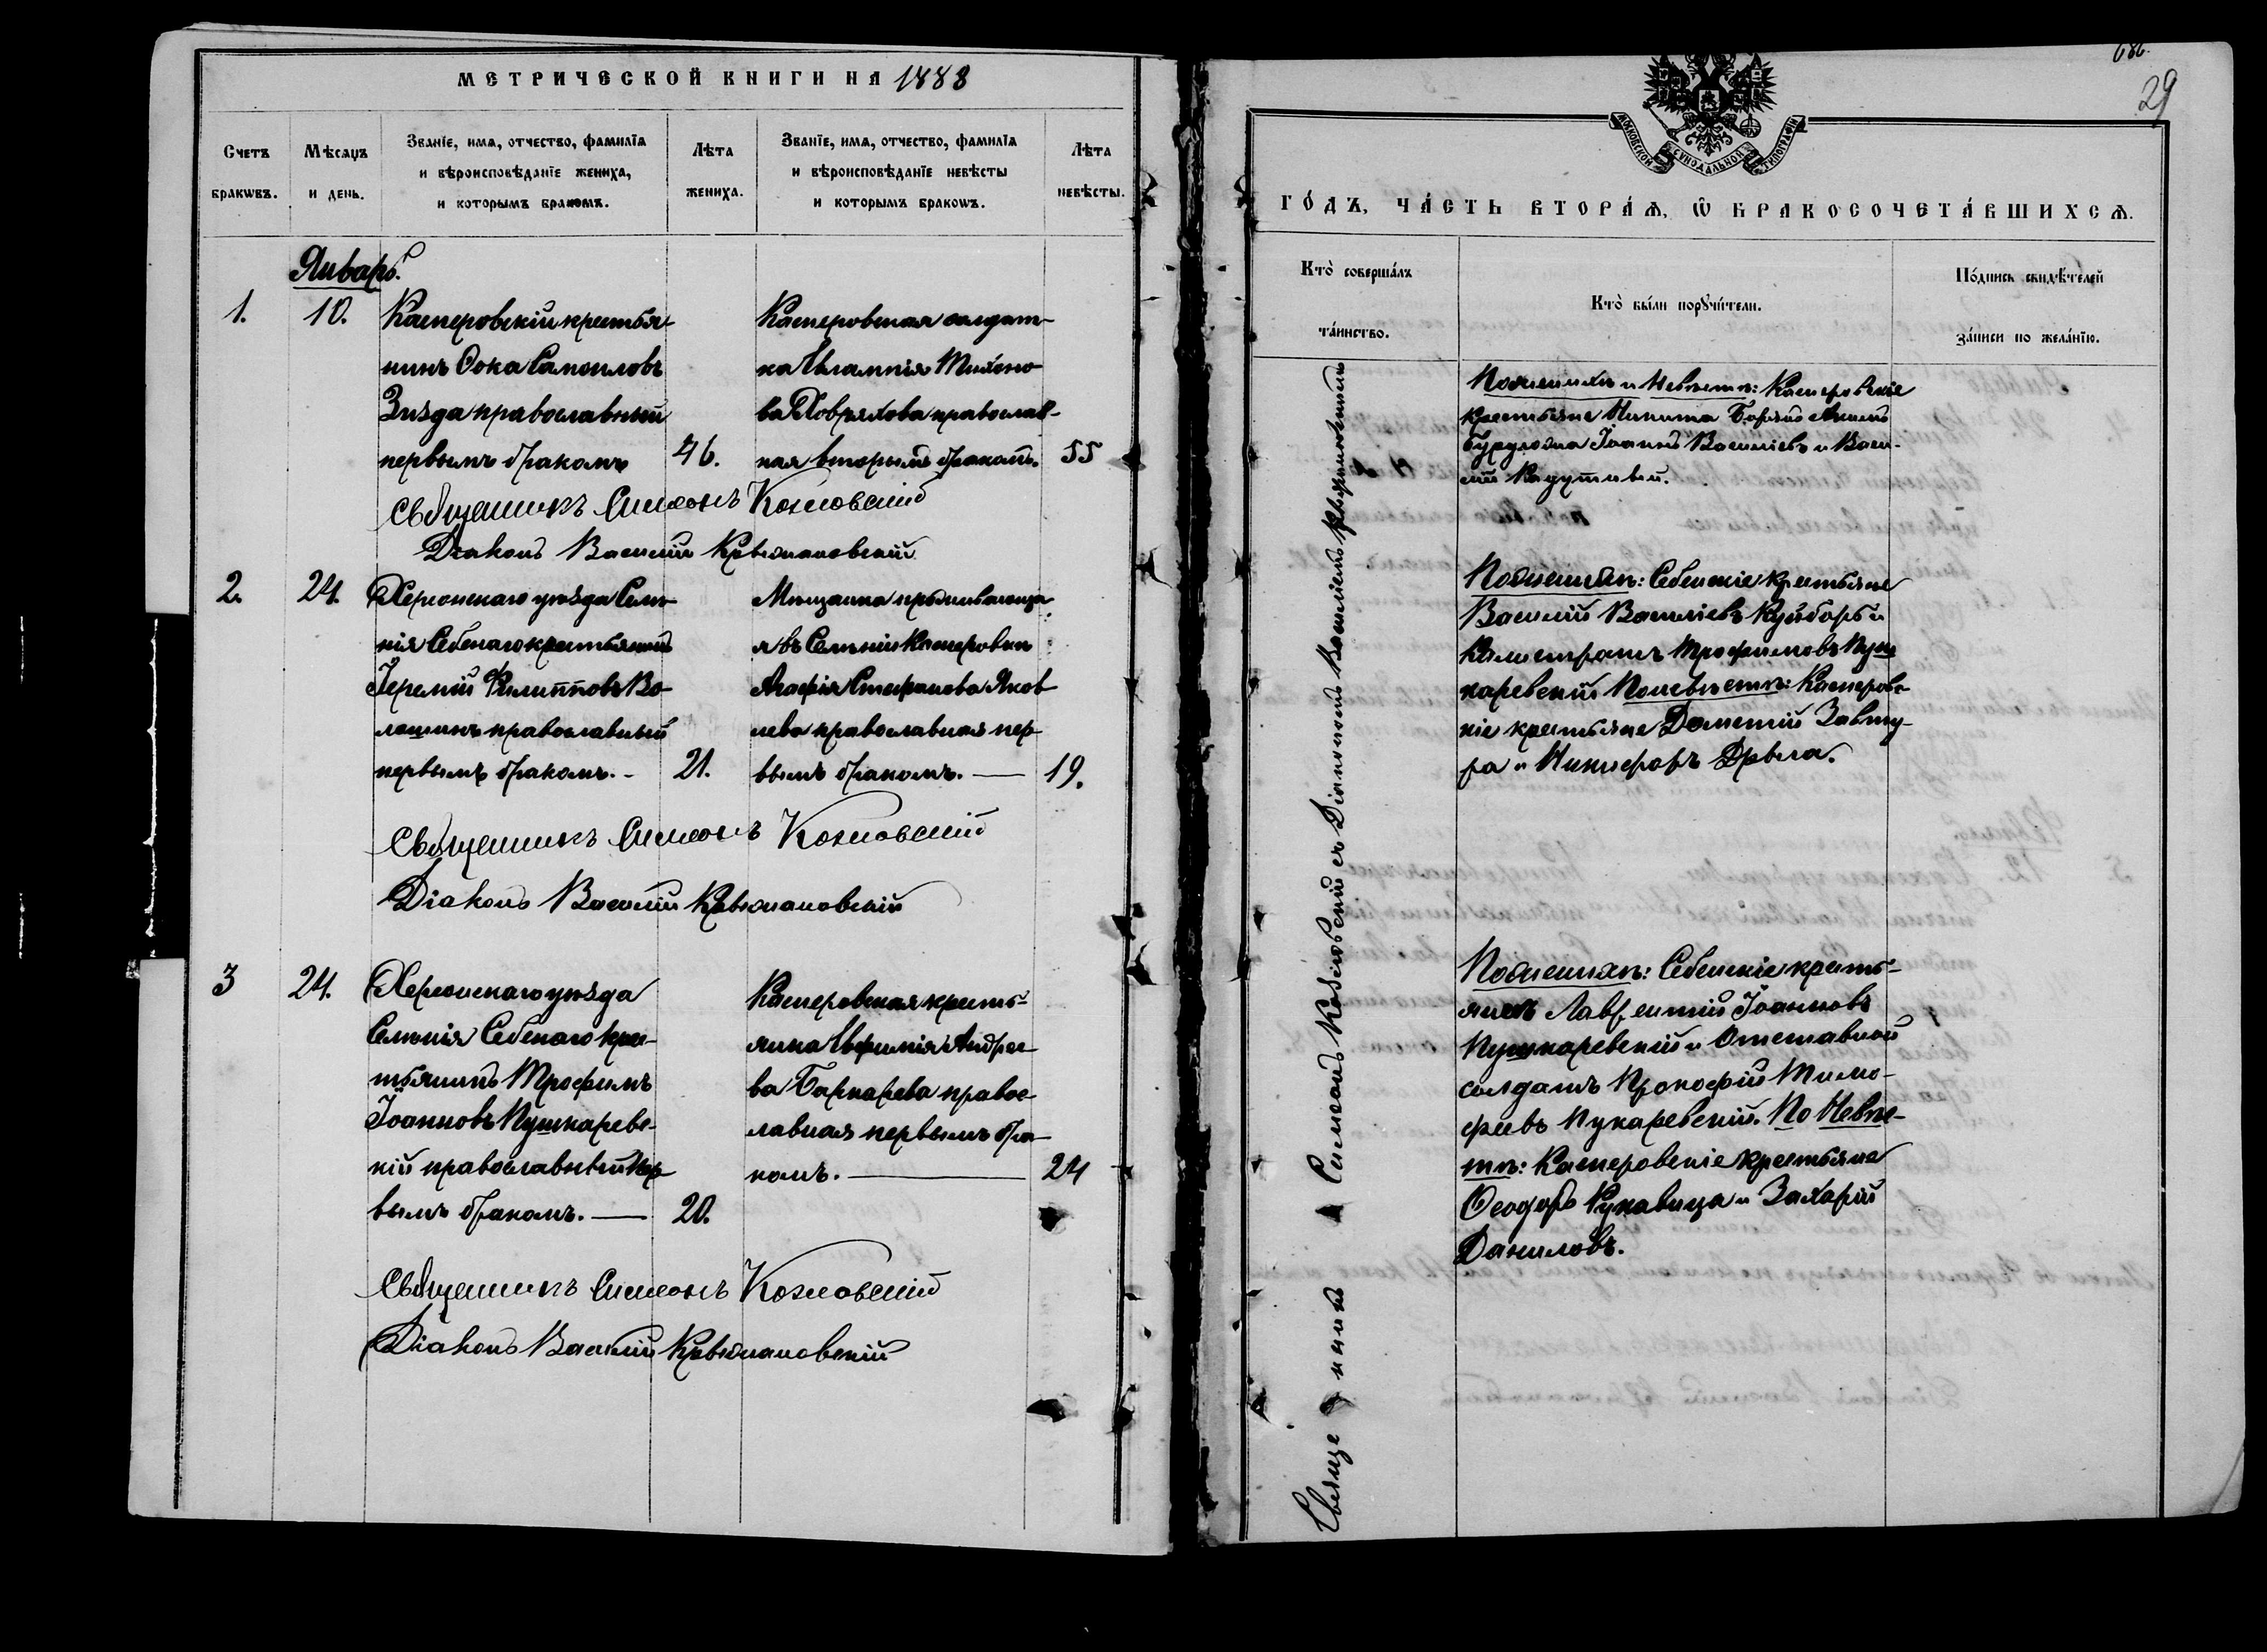 МЕТРИЧЕСКОЙ КНИГИ НА 1888
Счетъ бракѡвъ.
Мѣсяцъ и день.
Званїе, имѧ, отчество, фамилїѧ
и вѣроисповѣданїе жениха,
и которымъ бракомъ.
Лѣта жениха.
Званїе, имѧ, отчество, фамилїѧ
и вѣроисповѣданїе невѣсты
и которымъ бракомъ.
Лѣта невѣсты.
Январь.
1. 10.
Касперовскій крестья-
нинъ Ѳока Самоиловъ
православный
первымъ бракомъ 46.
Касперовская солдат-
ка Евлампія Тихоно-
ва православ-
ная вторымъ бракомъ. 55
Священникъ Симеонъ Козловскій
Діаконъ Василій Крыжановскій
2. 24.
Херсонскаго уѣзда Селе-
нія Себенаго крестьянинъ
Іеремій Филипповъ Во-
лошинъ православный
первымъ бракомъ. - 21.
Мѣщанка проживающа-
я въ Селеніи Касперовки
Агафія Стефанова Яков-
лева православная пер-
вымъ бракомъ. — 19.
Священникъ Симеонъ Козловскій
Діаконъ Василій Крыжановскій
3 24.
Херсонскаго уѣзда
Селенія Себенаго крес-
тьянинъ Трофимъ
Іоанновъ Пушкаревс-
кій православный пер-
вымъ бракомъ. — 20.
Касперовская кресть-
янка Евфимія Андрее-
ва правос-
лавная первымъ бра-
комъ. — 24
Священникъ Симеонъ Козловскій
Діаконъ Василій Крыжановскій
686.
29
МОСКОВСКОЙ СѴНОДАЛЬНОЙ ТИПОГРАФІИ
ГО́ДЪ, ЧА́СТЬ ВТОРА́Ѧ, Ѽ БРАКОСОЧЕТА́ВШИХСѦ.
Кто̀ соверша́лъ та́инство.
Кто̀ бы́ли порꙋчи́тели.
По́дпись свидѣ́телей
за́писи по жела́нїю.
Священникъ Симеонъ Козловскій съ Діакономъ Василіемъ Крыжановскимъ
По женихѣ и Невѣстѣ: Касперовскіе
крестьяне Никита
Іоаннъ Василіевъ и Васи-
лій
По женихѣ: Себенскіе крестьяне
Василій Василіевъ и
Калистратъ Трофимовъ Пуш-
каревскій По невѣстѣ: Касперовс-
кіе крестьяне Дометій Завту-
ра и Никифоръ
По женихѣ: Себенскіе кресть-
яне Лаврентій Іоанновъ
Пушкаревскій и Отставной
солдатъ Прокофій Тимо-
феевъ Пукаревскій. По Невѣс-
тѣ: Касперовскіе крестьяне
Ѳеодоръ Рукавица и Захарій
Даниловъ.